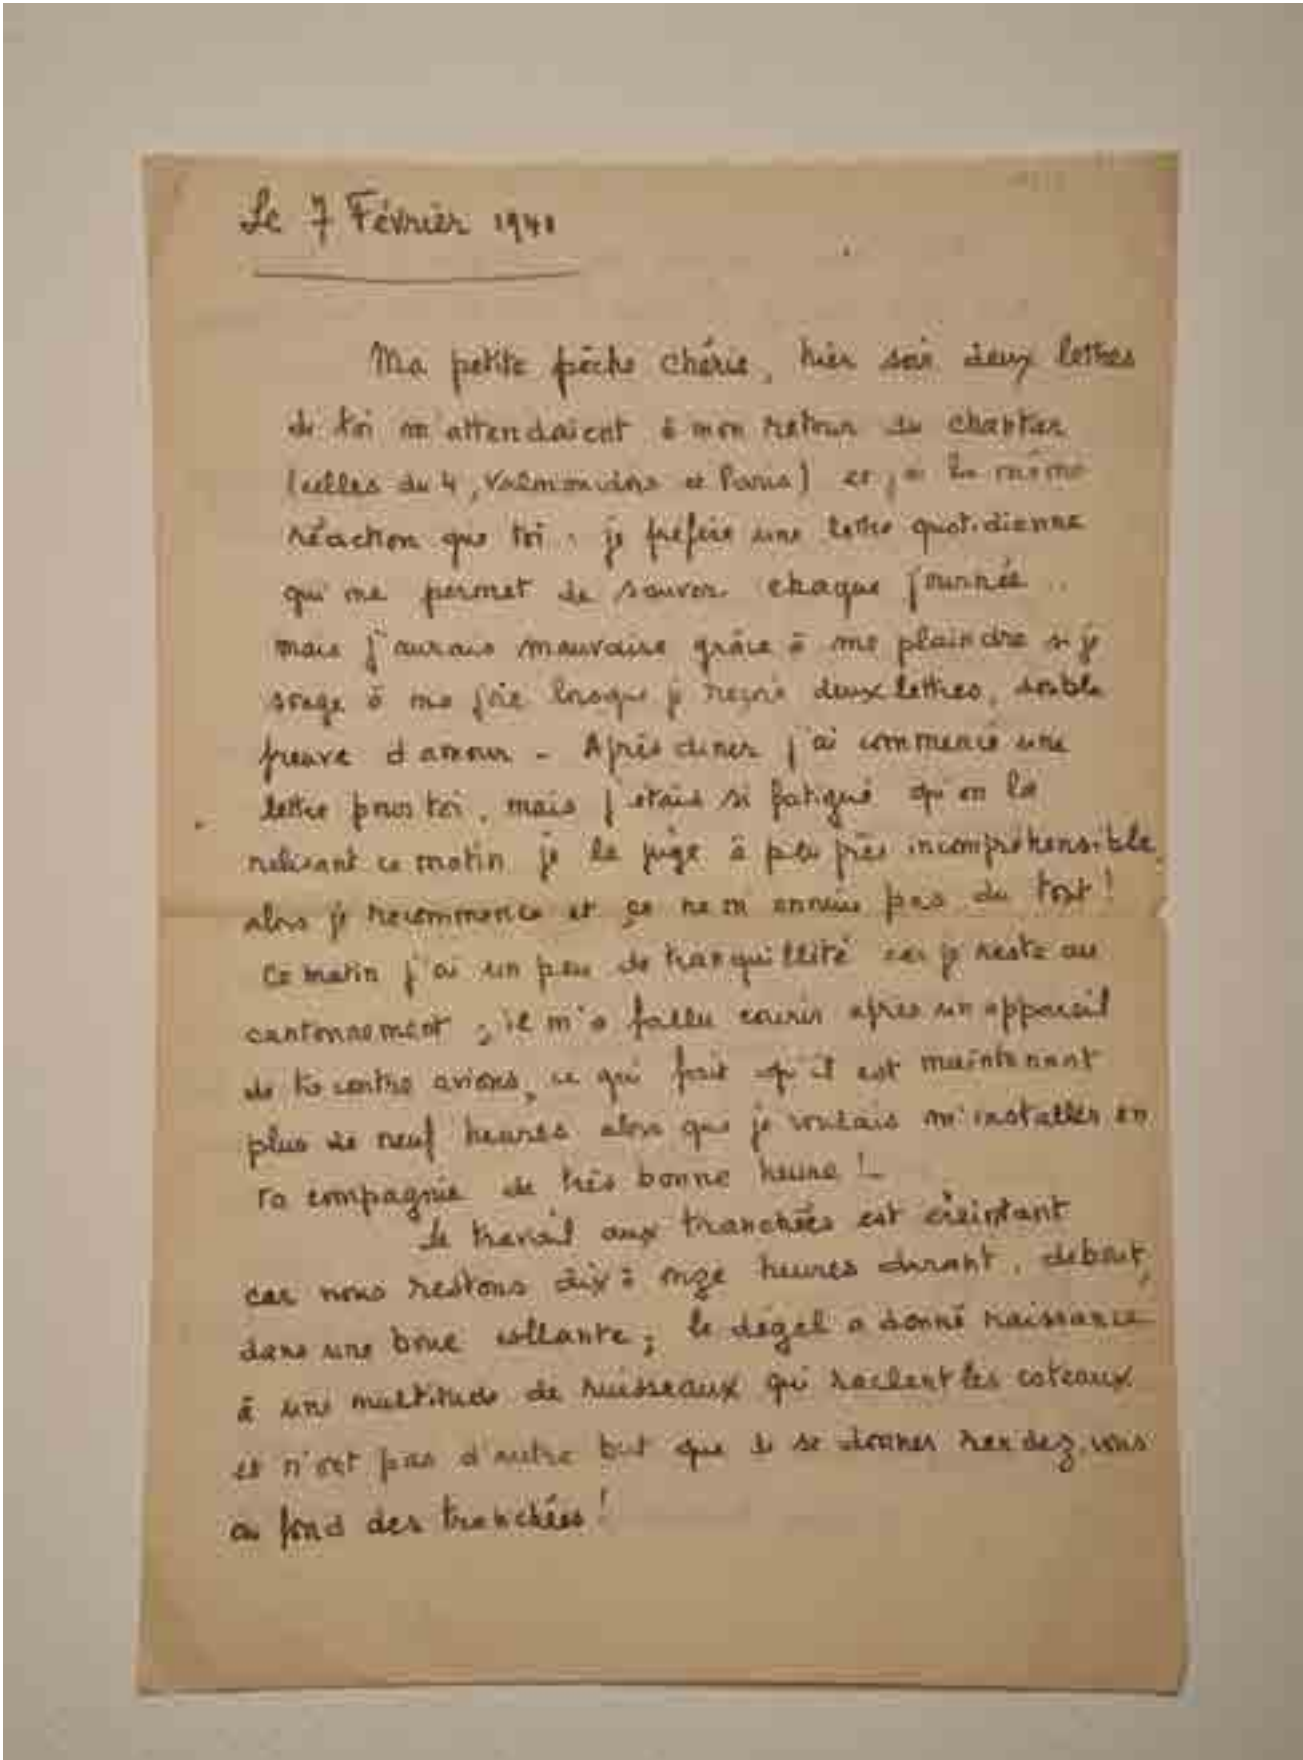 Le 7 Février 1940
Ma petite pêche chérie, hier soir deux lettres
de toi m'attendaient à mon retour du chantier
(celles du 4, Valmondois et Paris) et j'ai la même
réaction que toi : je préfère une lettre quotidienne
qui me permet de savoir chaque journée ..
mais j'aurais mauvaise grâce à me plaindre si je
songe à ma joie lorsque je reçois deux lettres, double
preuve d'amour - Après diner j'ai commencé une
lettre pour toi, mais j'étais si fatigué qu'en la
relisant ce matin je la juge à peu près incompréhensible,
alors je recommence et ça ne m'ennuie pas du tout !
Ce matin j'ai un peu de tranquillité car je reste au
cantonnement ; il m'a fallu courir après un appareil
de tir contre avions, ce qui fait qu'il est maintenant
plus de neuf heures alors que je voulais m'installer en
ta compagnie de très bonne heure ! -
Le travail aux tranchées est éreintant
car nous restons dix à onze heures durant, debout,
dans une boue collante ; le dégel a donné naissance
à une multitude de ruisseaux qui raclent les coteaux
et n'ont pas d'autre but que de se donner rendez-vous
au fond des tranchées !